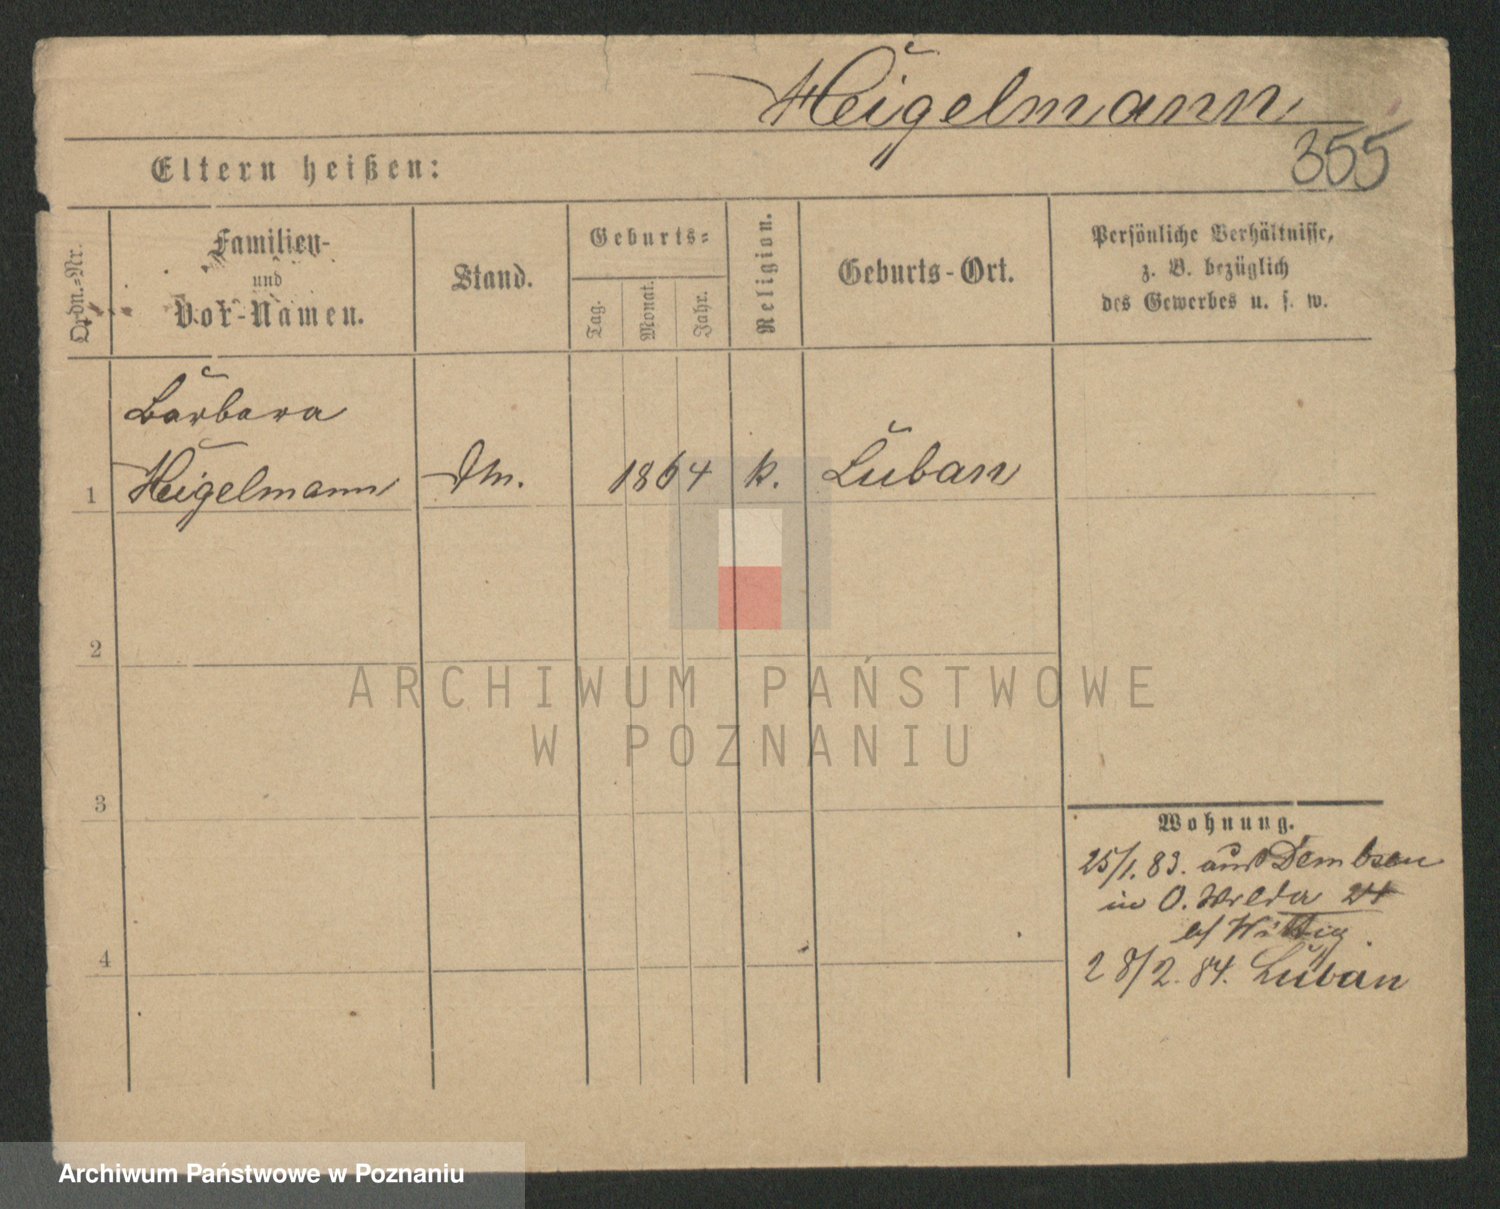 Heigelmann
355
Eltern heißen:
Ordn.-Nr.
Familien-
und
Vor-Namen.
Stand.
Geburts-
Tag.
Monat.
Jahr.
Religion.
Geburts-Ort.
Persönliche Verhältnisse,
z. B. bezüglich
des Gewerbes u. s. w.
Barbara
1 Heigelmann 1864 k. Luban
2
3
4
Wohnung.
25/1. 83. aus Dembsen
in O. Wilda 24
b/ Wittig
28/2. 84. Luban
ARCHIWUM PAŃSTWOWE
W POZNANIU
Archiwum Państwowe w Poznaniu